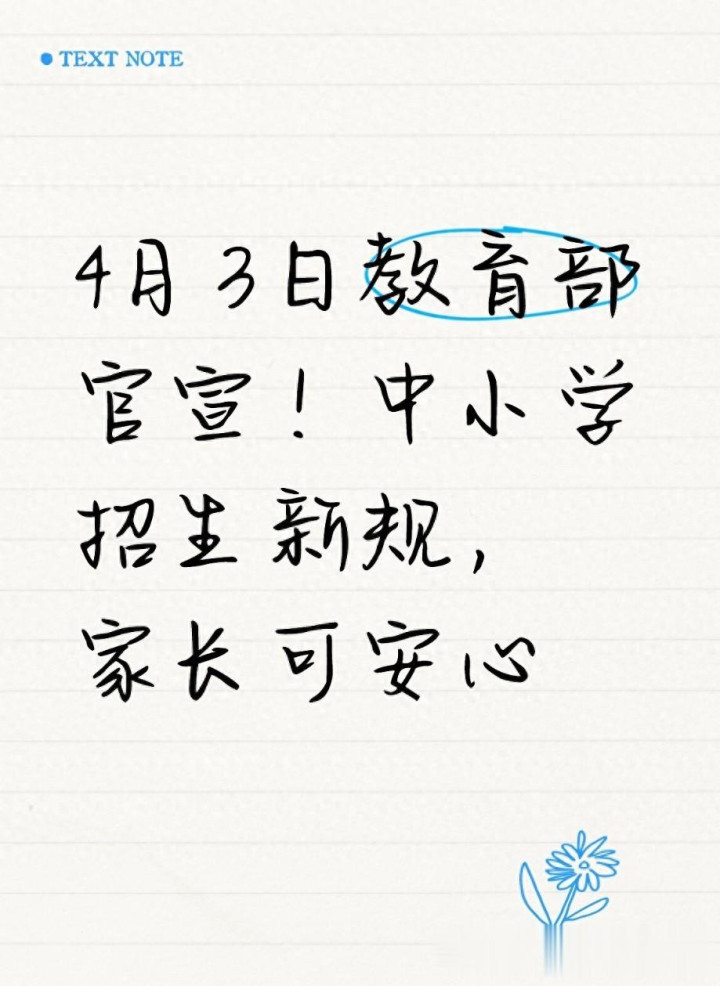 TEXT NOTE
4月3日教育部
官宣！中小学
招生新规，
家长可安心